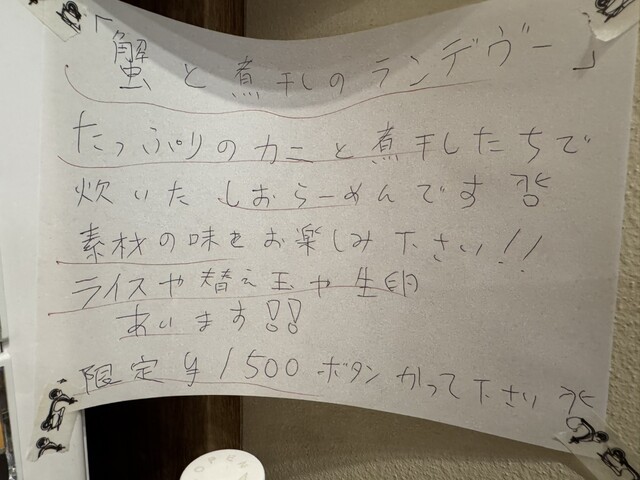 「蟹と煮干しのランデヴー」
たっぷりのカニと煮干したちで
炊いたしおらーめんです
素材の味をお楽しみ下さい!!
ライスや替え玉や生卵
あいます!!
限定¥1500ボタンかって下さい
OPEN